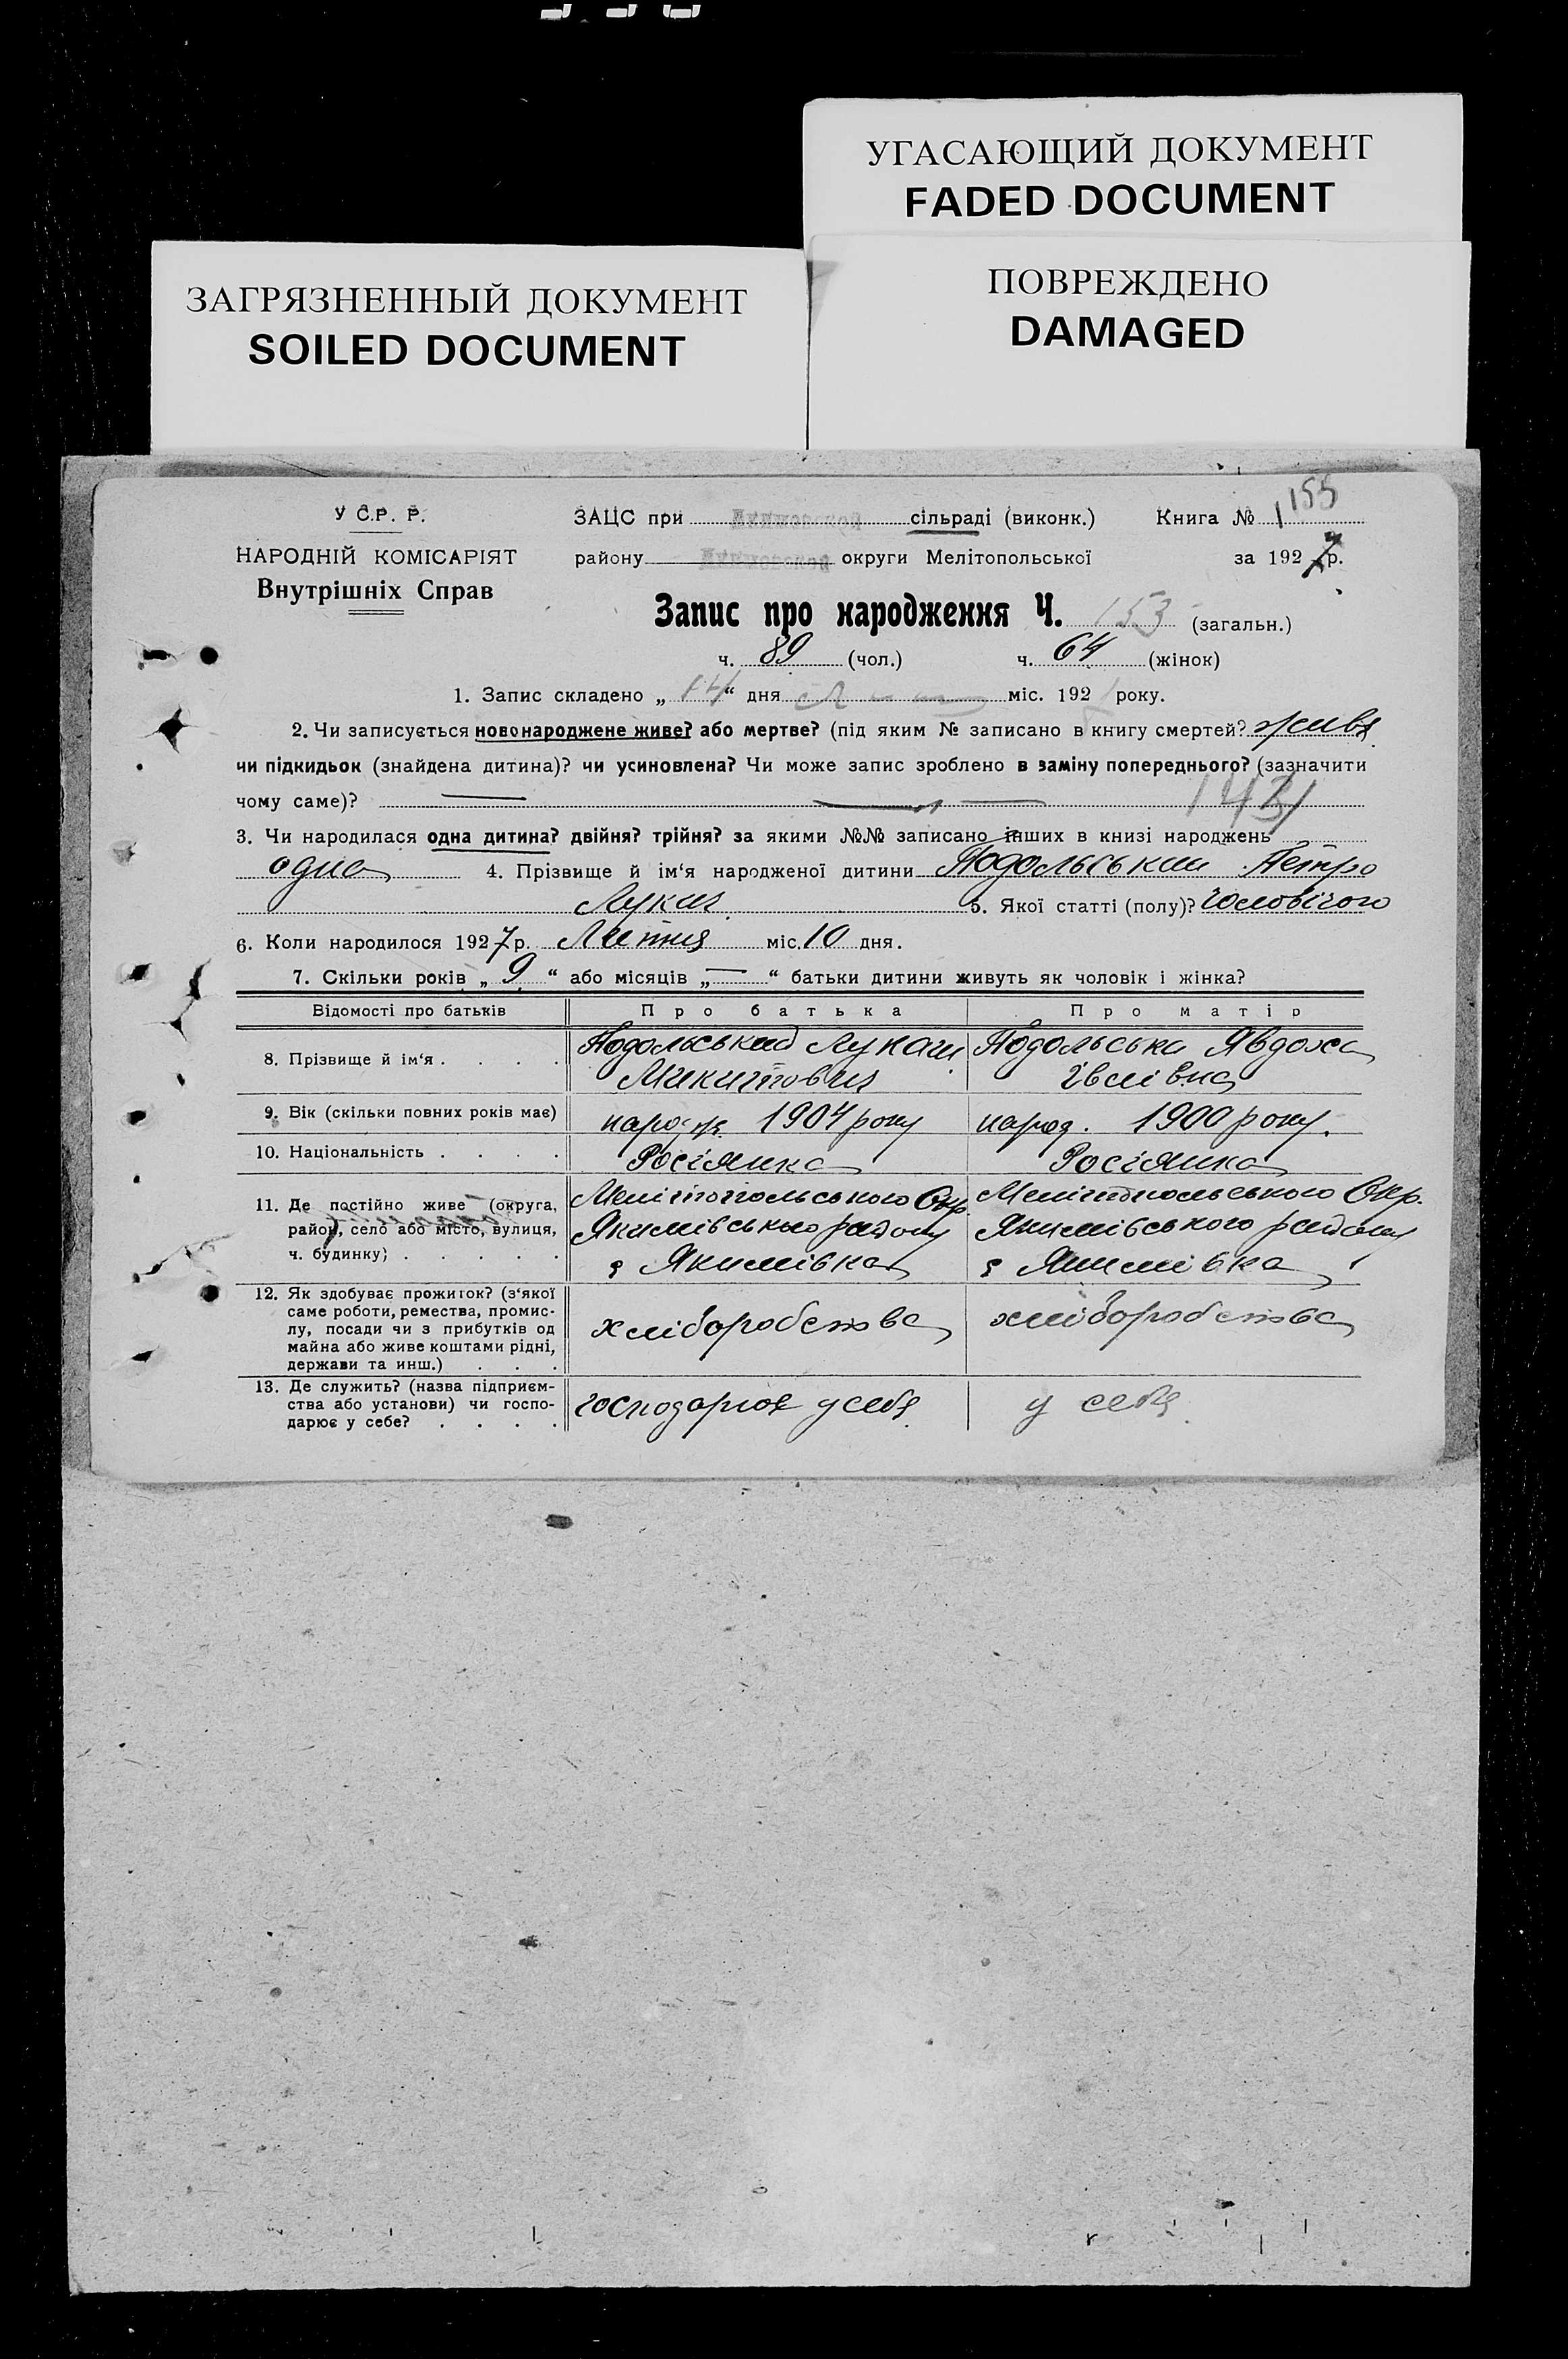 УГАСАЮЩИЙ ДОКУМЕНТ
FADED DOCUMENT
ЗАГРЯЗНЕННЫЙ ДОКУМЕНТ
SOILED DOCUMENT
ПОВРЕЖДЕНО
DAMAGED
У С.Р. Р.
НАРОДНІЙ КОМІСАРІЯТ
Внутрішніх Справ
ЗАЦС при сільраді (виконк.) Книга № 1 155
району округи Мелітопольської за 1927 р.
Запис про народження Ч. 153 (загальн.)
ч. 89 (чол.) ч. 64 (жінок)
1. Запис складено „ 14 “ дня міс. 192 року.
2. Чи записується новонароджене живе? або мертве? (під яким № записано в книгу смертей? живе
чи підкидьок (знайдена дитина)? чи усиновлена? Чи може запис зроблено в заміну попереднього? (зазначити
чому саме)? —
3. Чи народилася одна дитина? двійня? трійня? за якими №№ записано інших в книзі народжень
одна 4. Прізвище й ім‘я народженої дитини Подольський Петро
Лукич 5. Якої статті (полу)? чоловічого
6. Коли народилося 1927 р. Липня міс. 10 дня.
7. Скільки років „ 9 “ або місяців „ — “ батьки дитини живуть як чоловік і жінка?
Відомості про батьків Про батька Про матір
8. Прізвище й ім‘я . . . . Подольський Лукаш Подольська Явдоха
Микитович Івлівна
9. Вік (скільки повних років має) народж. 1904 року народ. 1900 року.
10. Національність . . . . Росіянка Росіянка
11. Де постійно живе (округа, Мелітопольського Окр. Мелітопольського Окр.
район, село або місто, вулиця, Якимівського району Якимівського району
ч. будинку) . . . . . с Якимівка с Якимівка
12. Як здобуває прожиток? (з‘якої
саме роботи, ремества, промис-
лу, посади чи з прибутків од хліборобства хліборобства
майна або живе коштами рідні,
держави та инш.) . . .
13. Де служить? (назва підприєм-
ства або установи) чи госпо- господарює у себе у себе
дарює у себе? . . . .